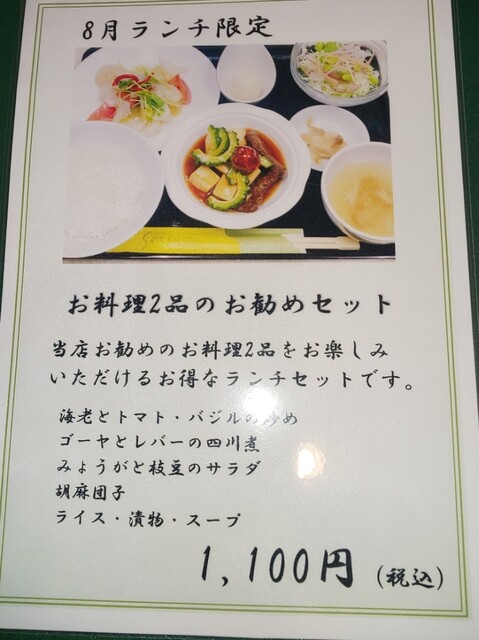 8月ランチ限定
お料理2品のお勧めセット
当店お勧めのお料理2品をお楽しみ
いただけるお得なランチセットです。
海老とトマト・バジルの炒め
ゴーヤとレバーの四川煮
みょうがと枝豆のサラダ
胡麻団子
ライス・漬物・スープ
1,100円(税込)